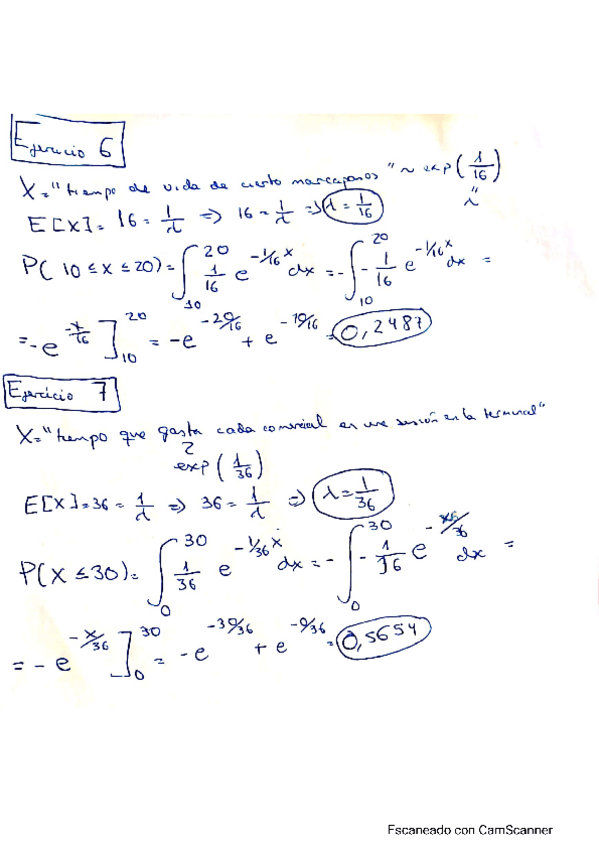 Ejercicio 6
X = "tiempo de vida de cierto marcapasos" ~ exp(1/16)
" λ
E[X] = 16 = 1/λ => 16 = 1/λ => λ = 1/16
P(10 ≤ x ≤ 20) = ∫_10^20 1/16 e^(-1/16 x) dx = - ∫_10^20 -1/16 e^(-1/16 x) dx =
= -e^(-x/16) ]_10^20 = -e^(-20/16) + e^(-10/16) = 0,2487
Ejercicio 7
X = "tiempo que gasta cada comercial en una sesión en la terminal"
~
exp(1/36)
E[X] = 36 = 1/λ => 36 = 1/λ => λ = 1/36
P(X ≤ 30) = ∫_0^30 1/36 e^(-1/36 x) dx = - ∫_0^30 -1/36 e^(-x/36) dx =
= -e^(-x/36) ]_0^30 = -e^(-30/36) + e^(-0/36) = 0,5654
Escaneado con CamScanner